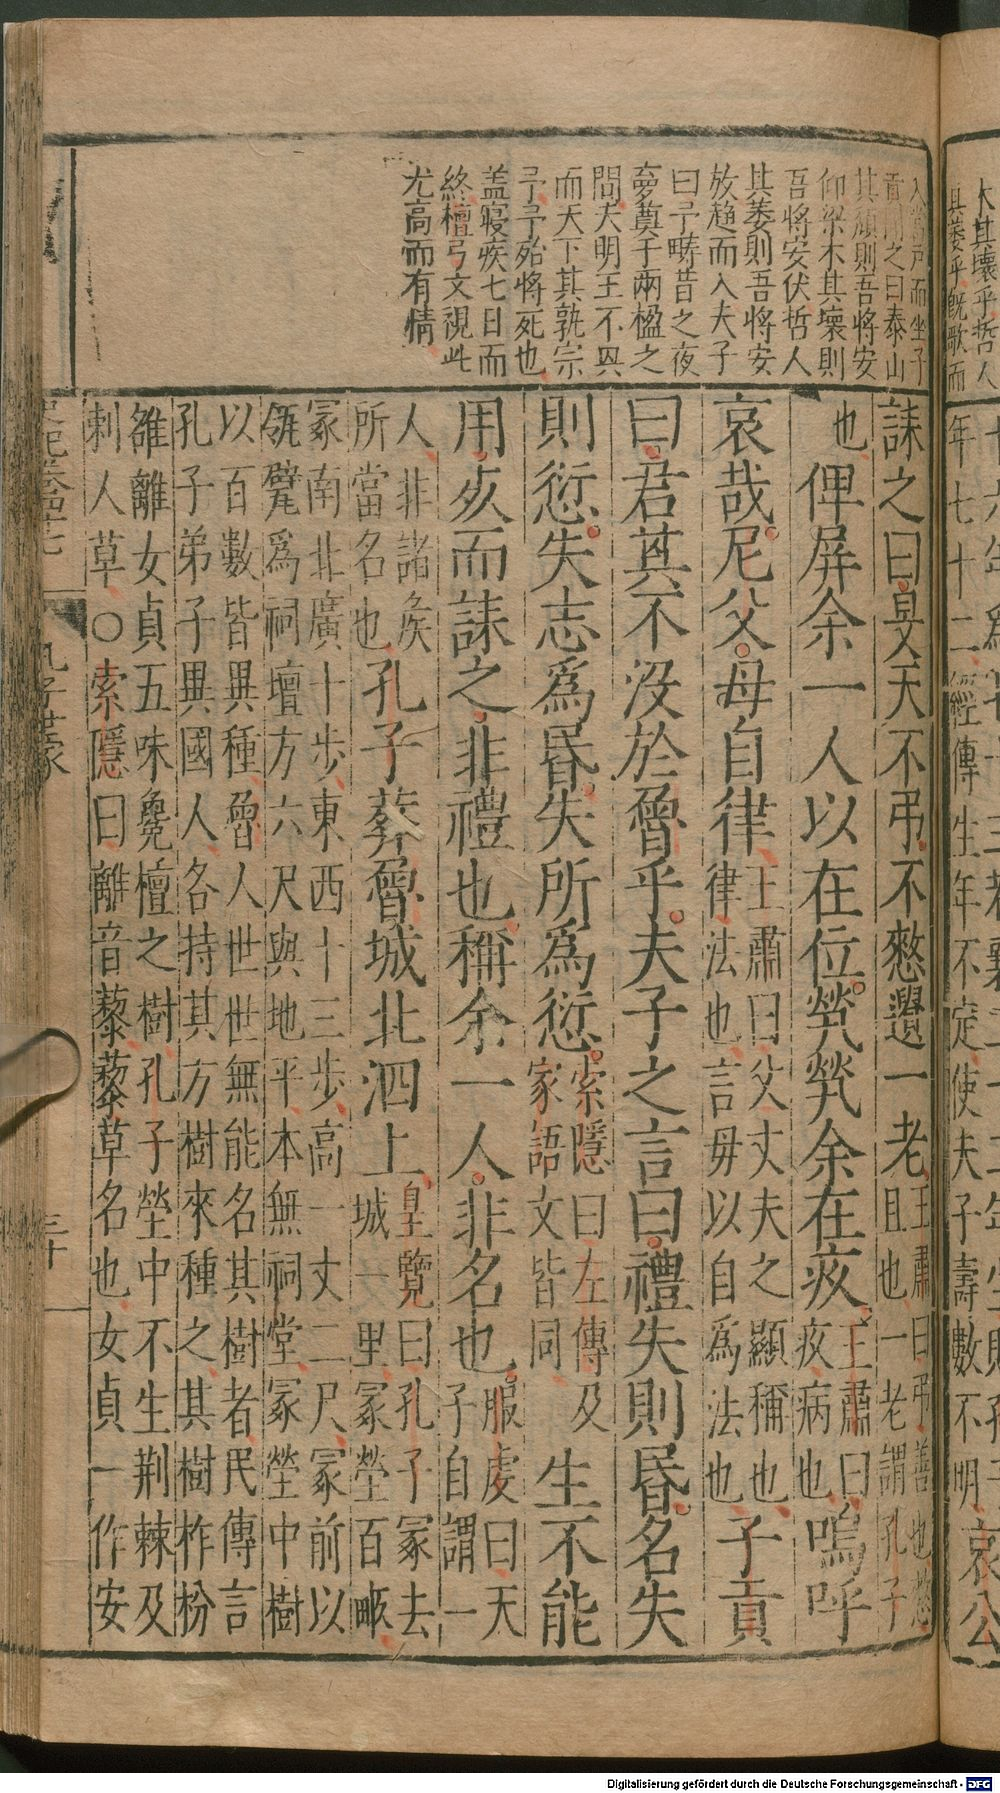 木其壞乎哲人
其萎乎既歌而
年七十二
經傳生年不定使夫子壽數不明
哀公
入當戶而坐子
貢聞之曰泰山
其頹則吾將安
仰梁木其壞則
吾將安伏哲人
其萎則吾將安
放趨而入夫子
曰予疇昔之夜
夢奠于兩楹之
間夫明王不興
而天下其孰宗
予予殆將死也
盖寢疾七日而
終檀弓文視此
尤高而有情
誄之曰旻天不弔不憗遺一老
王肅曰弔善也憗
且也一老謂孔子
也
俾屏余一人以在位煢煢余在疚
王肅曰
疚病也
嗚呼
哀哉尼父毋自律
王肅曰父丈夫之顯稱也
律法也言毋以自為法也
子貢
曰君其不没於魯乎夫子之言曰禮失則昬名失
則愆失志爲昬失所爲愆
索隱曰左傳及
家語文皆同
生不能
用死而誄之非禮也稱余一人非名也
服虔曰天
子自謂一
人非諸矦
所當名也
孔子葬魯城北泗上
皇覽曰孔子冢去
城一里冢塋百畝
冢南北廣十步東西十三步高一丈二尺冢前以
瓴甓爲祠壇方六尺與地平本無祠堂冢塋中樹
以百數皆異種魯人世世無能名其樹者民傳言
孔子弟子異國人各持其方樹來種之其樹柞枌
雒離女貞五味毚檀之樹孔子塋中不生荆棘及
刺人草○索隱曰離音藜藜草名也女貞一作安
史記卷四十七
孔子世家
三十
Digitalisierung gefördert durch die Deutsche Forschungsgemeinschaft - DFG